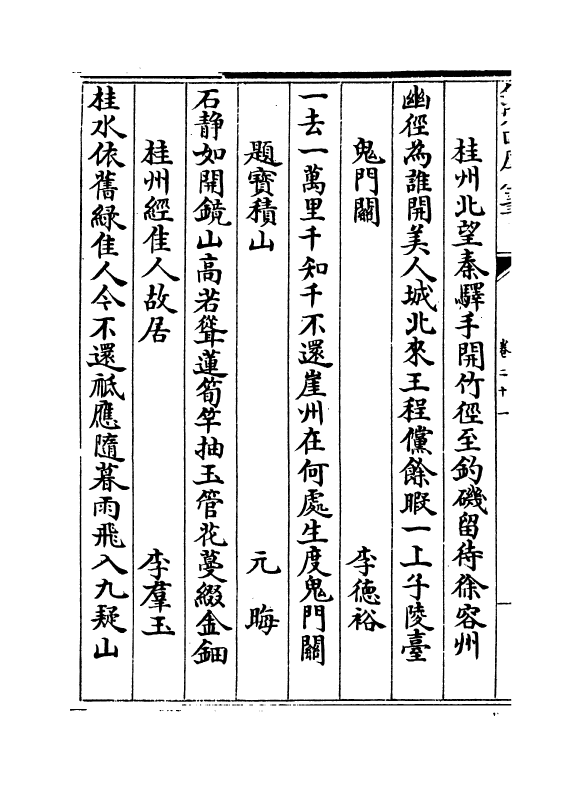 卷二十一
桂州北望秦驛手開竹徑至釣磯留待徐容州
幽徑為誰開美人城北來王程儻餘暇一上子陵臺
鬼門關 李德裕
一去一萬里千知千不還崖州在何處生度鬼門關
題寶積山 元晦
石静如開鏡山高若聳蓮筍竿抽玉管花蔓綴金鈿
桂州經佳人故居 李羣玉
桂水依舊緑佳人今不還祗應隨暮雨飛入九疑山